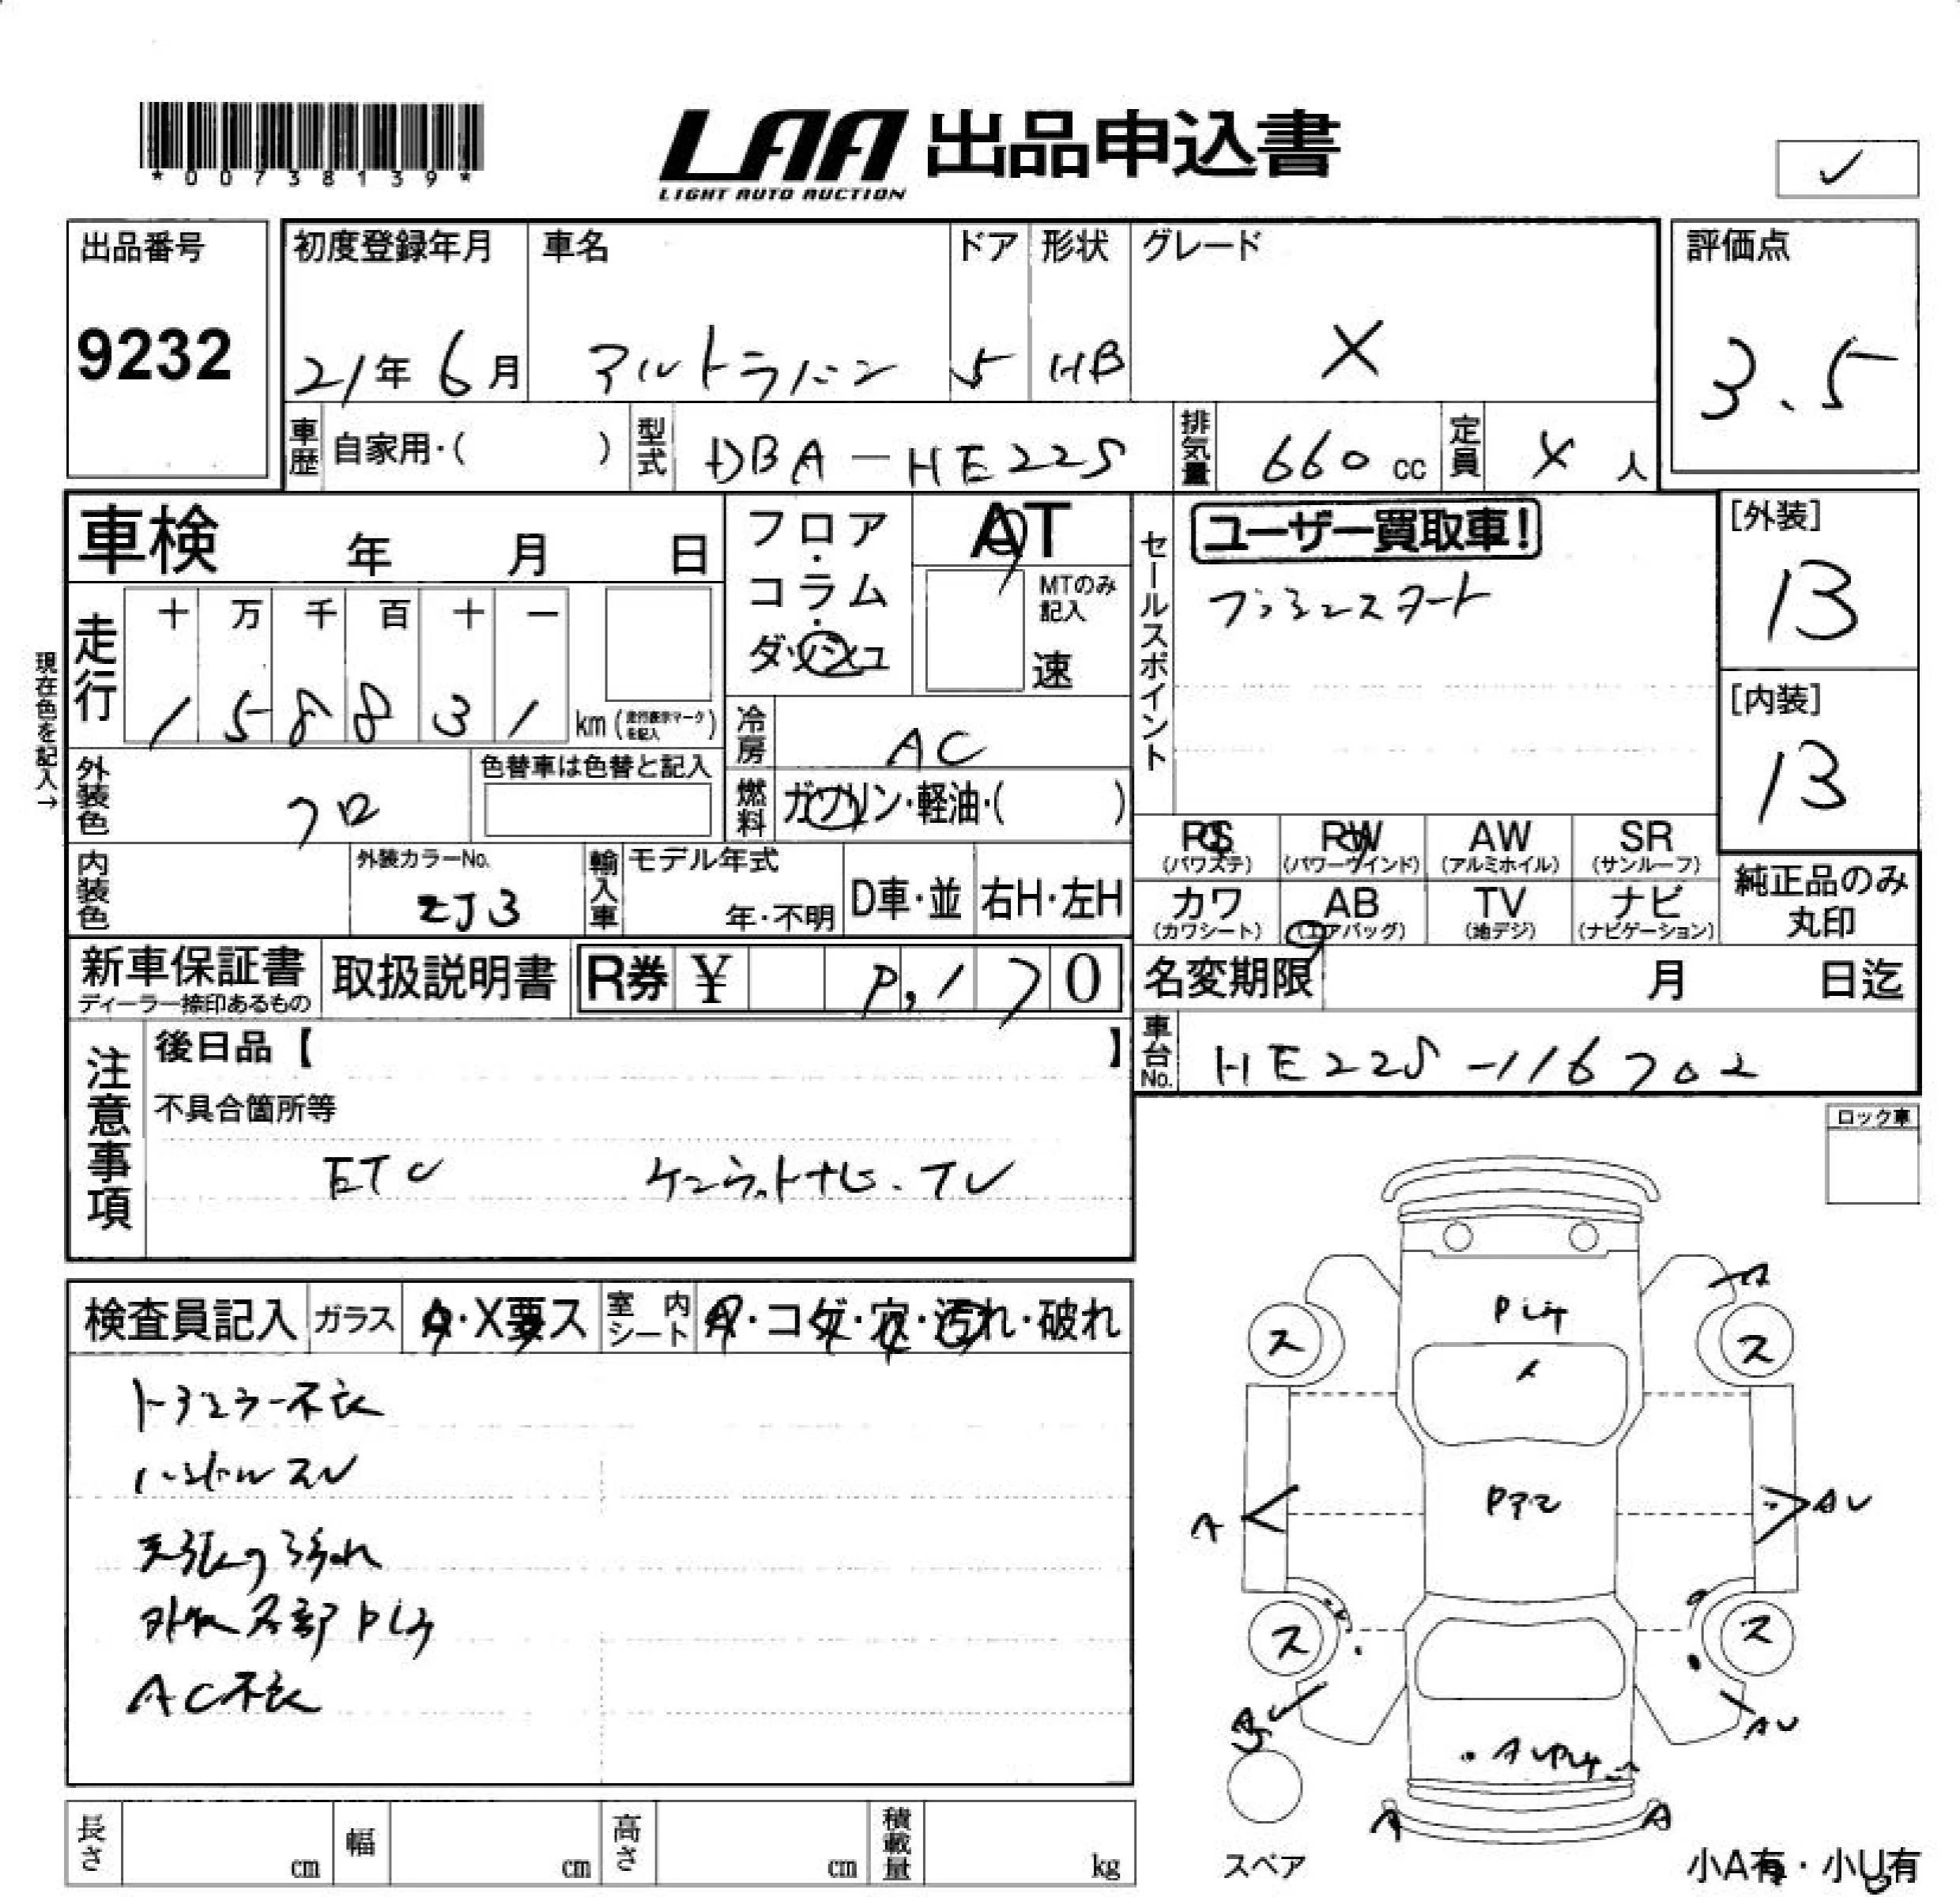 *00738139*
LAA 出品申込書
LIGHT AUTO AUCTION
✓
出品番号
9232
初度登録年月
21年6月
車名
アルトラパン
ドア
5
形状
HB
グレード
X
評価点
3.5
車歴
自家用・( )
型式
DBA-HE22S
排気量
660 cc
定員
人
車検 年 月 日
フロア・コラム・ダッシュ
AT
MTのみ記入
速
セールスポイント
ユーザー買取車!
プッシュスタート
[外装]
13
[内装]
13
現在色を記入→
走行
十 万 千 百 十 一
1 5 8 8 3 1 km (走行表示マークを記入)
冷房
AC
外装色
クロ
色替車は色替と記入
燃料
ガソリン・軽油・( )
PS
(パワステ)
PW
(パワーウインド)
AW
(アルミホイル)
SR
(サンルーフ)
カワ
(カワシート)
AB
(エアバッグ)
TV
(地デジ)
ナビ
(ナビゲーション)
純正品のみ
丸印
内装色
外装カラーNo.
ZJ3
輸入車
モデル年式
年・不明
D車・並
右H・左H
新車保証書
ディーラー捺印あるもの
取扱説明書
R券 ¥
170
名変期限 月 日迄
車台No.
HE22S-116702
注意事項
後日品【 】
不具合箇所等
ETC ケンウッドナビ・TV
ロック車
検査員記入
ガラス
A・X要ス
室内シート
A・コゲ・穴・汚れ・破れ
ハンドルスレ
外装各部Pレ
AC不良
A
ス
ス
A
AU
ス
ス
AU
A
A
スペア
小A有・小U有
長さ cm
幅 cm
高さ cm
積載量 kg